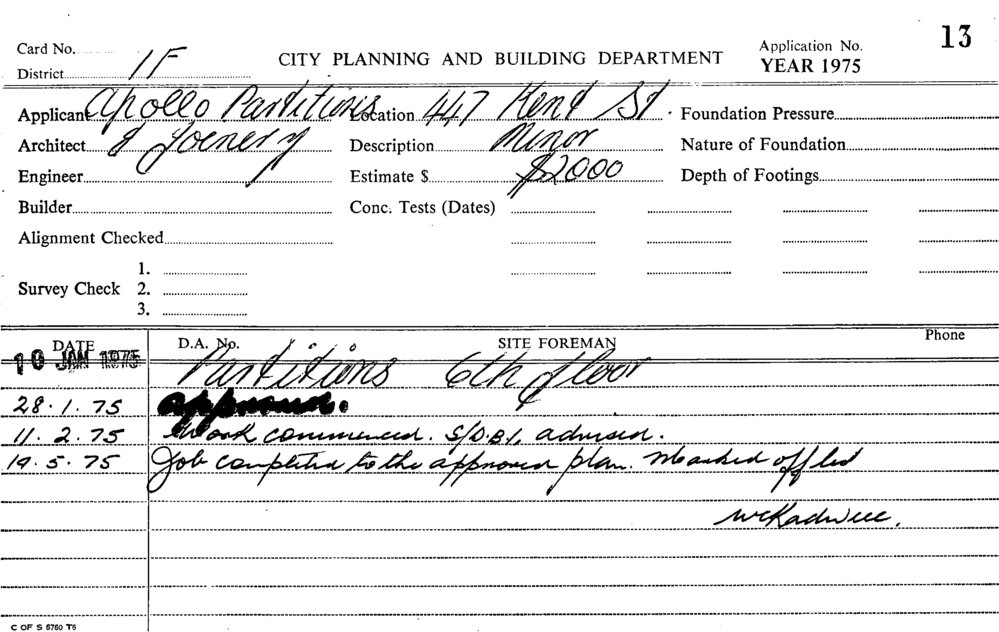 Card No. Application No. 13
District 1F CITY PLANNING AND BUILDING DEPARTMENT YEAR 1975
Applicant Apollo Partitions Location 447 Kent St. Foundation Pressure
Architect & Joenery Description Minor Nature of Foundation
Engineer Estimate $ $2000 Depth of Footings
Builder Conc. Tests (Dates)
Alignment Checked
1.
Survey Check 2.
3.
DATE D.A. No. SITE FOREMAN Phone
10 JAN 1975 Partitions 6th floor
28.1.75 approved.
11.2.75 Work commenced. S/D.B.I. advised.
19.5.75 Job completed to the approved plan. Marked off
C OF S 6760 T6